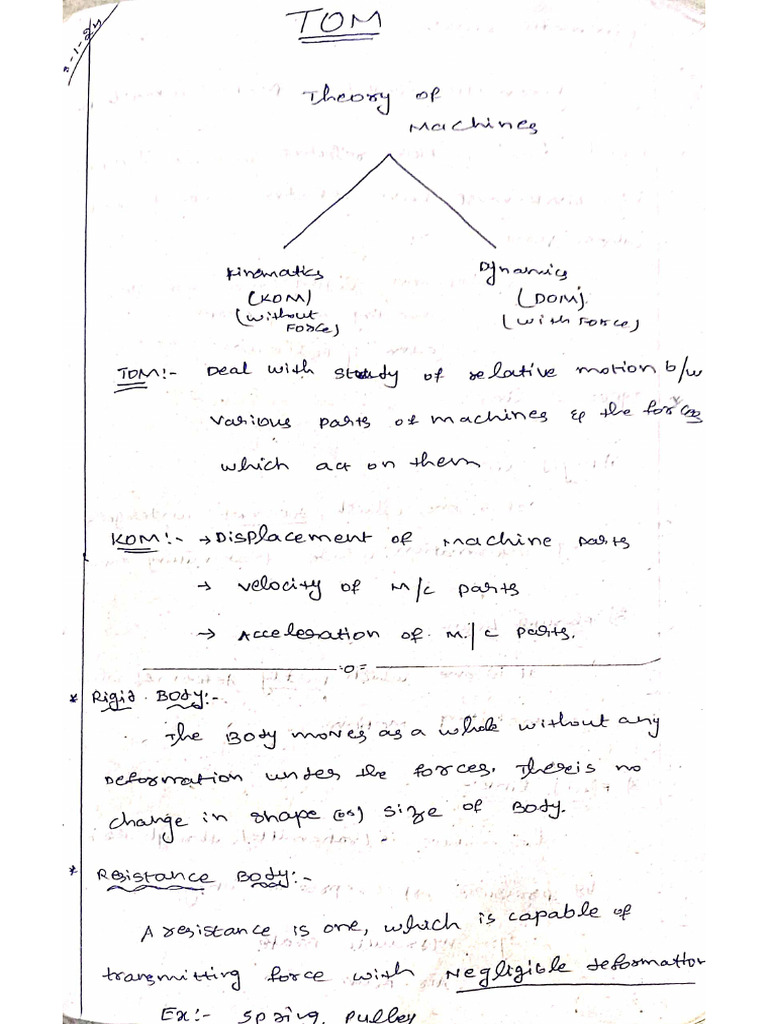 TOM
Theory of
Machines
Kinematics
(KOM)
(without
Force)
Dynamics
(DOM)
(with Force)
TOM:- Deal with study of relative motion b/w
various parts of machines & the forces
which act on them
KOM:- → Displacement of machine parts
→ velocity of M/c parts
→ Acceleration of M/c parts.
* Rigid Body:-
The Body moves as a whole without any
Deformation under the forces. There is no
change in shape (or) size of Body.
* Resistance Body:-
A resistance is one, which is capable of
transmitting force with Negligible deformation
Ex:- Spring, Pulley